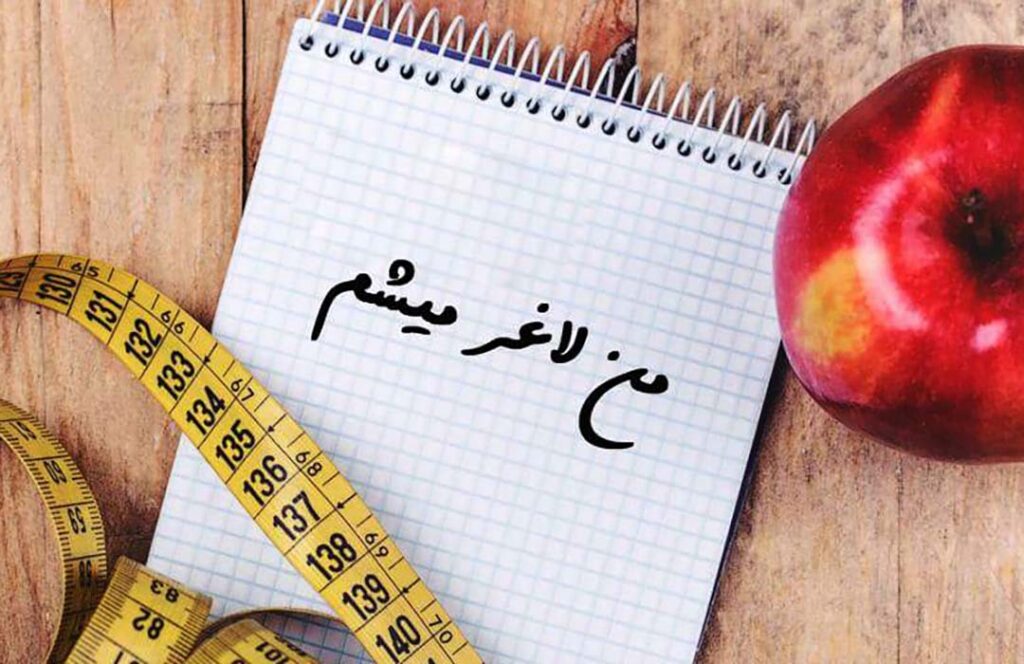 من لاغر میشم
130 131 132 133 134 135 136 137 138 139 140
65 66 67 68 69 70
83 82